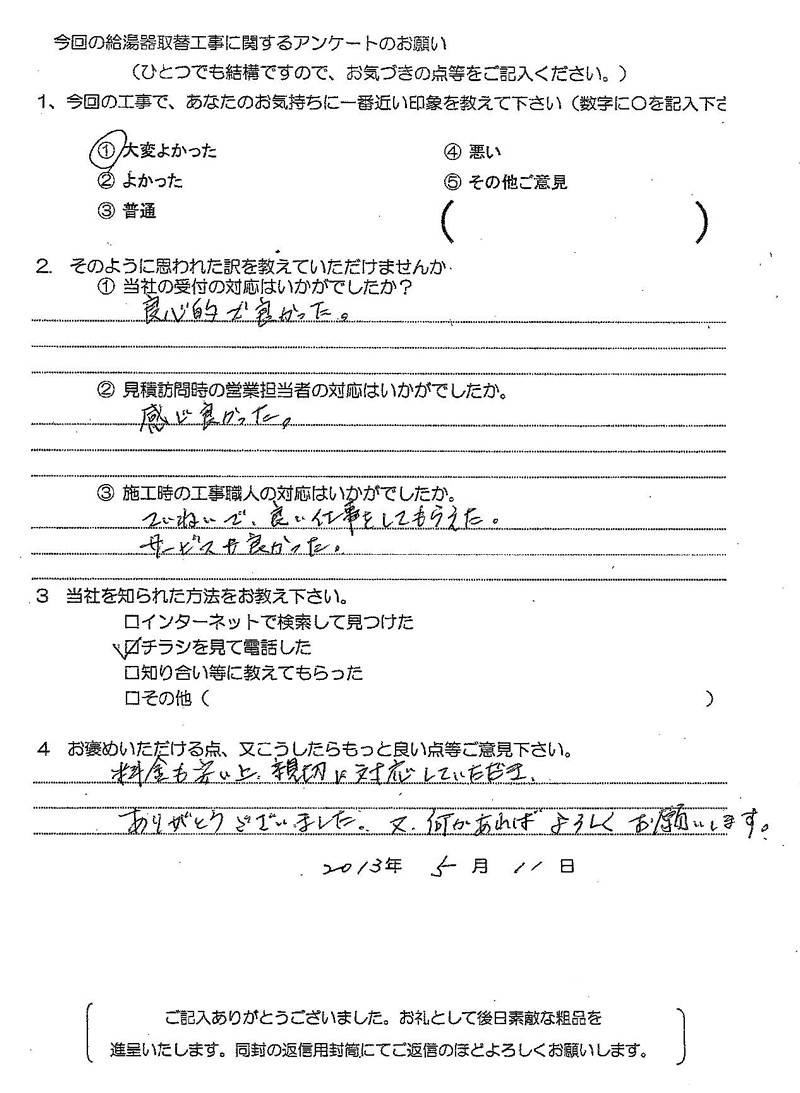 今回の給湯器取替工事に関するアンケートのお願い
（ひとつでも結構ですので、お気づきの点等をご記入ください。）
1、今回の工事で、あなたのお気持ちに一番近い印象を教えて下さい（数字に〇を記入下さ
① 大変よかった
② よかった
③ 普通
④ 悪い
⑤ その他ご意見
(　　　)
2. そのように思われた訳を教えていただけませんか
① 当社の受付の対応はいかがでしたか？
良心的で良かった。
② 見積訪問時の営業担当者の対応はいかがでしたか。
感じ良かった。
③ 施工時の工事職人の対応はいかがでしたか。
ていねいで、良い仕事をしてもらえた。
サービスも良かった。
3 当社を知られた方法をお教え下さい。
□インターネットで検索して見つけた
☑チラシを見て電話した
□知り合い等に教えてもらった
□その他（　　　）
4 お褒めいただける点、又こうしたらもっと良い点等ご意見下さい。
料金も安い上、親切に対応していただき、
ありがとうございました。又、何かあればよろしくお願いします。
2013年 5月 11日
ご記入ありがとうございました。お礼として後日素敵な粗品を
進呈いたします。同封の返信用封筒にてご返信のほどよろしくお願いします。